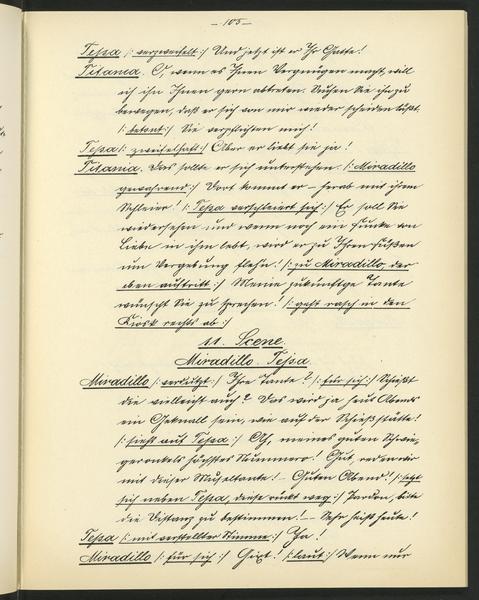 — 105 —
Tessa /: verzweifelt :/ Und jetzt ist er Ihr Gatte!
Titania. O, wenn es Ihnen Vergnügen macht, will
ich ihn Ihnen gern abtreten. Suchen Sie ihn zu
bewegen, daß er sich von mir wieder scheiden läßt.
/: betont :/ Sie verpflichten mich!
Tessa /: zweifelhaft :/ Aber er liebt sie ja!
Titania. Das sollte er sich unterstehen. /: Miradillo
gewahrend :/ Dort kommt er — herab mit ihrem
Schleier! /: Tessa verschleiert sich :/ Er soll Sie
wiedersehen und wenn noch ein Funke von
Liebe in ihm lebt, wird er zu Ihren Füßen
um Vergebung flehn! /: zu Miradillo, der
eben auftritt :/ Meine zukünftige Tante
wünscht Sie zu sprechen! /: geht rasch in den
Kiosk rechts ab :/
11. Scene.
Miradillo. Tessa.
Miradillo /: verdutzt :/ Ihre Tante? /: für sich :/ Schießt
die vielleicht auch? Das wird ja heut Abend
ein Geknall sein, wie auf der Schießstätte!
/: sieht auf Tessa :/ Ah, meines guten Schwie-
geronkels höchstes Nummero! Gut, reden wir
mit dieser Muscheltante! — Guten Abend! /: setzt
sich neben Tessa, diese rückt weg :/ Pardon, bitte
die Distanz zu bestimmen! — Sehr heiß heute!
Tessa /: mit verstellter Stimme :/ Ja!
Miradillo /: für sich :/ /: laut :/ Wenn nur